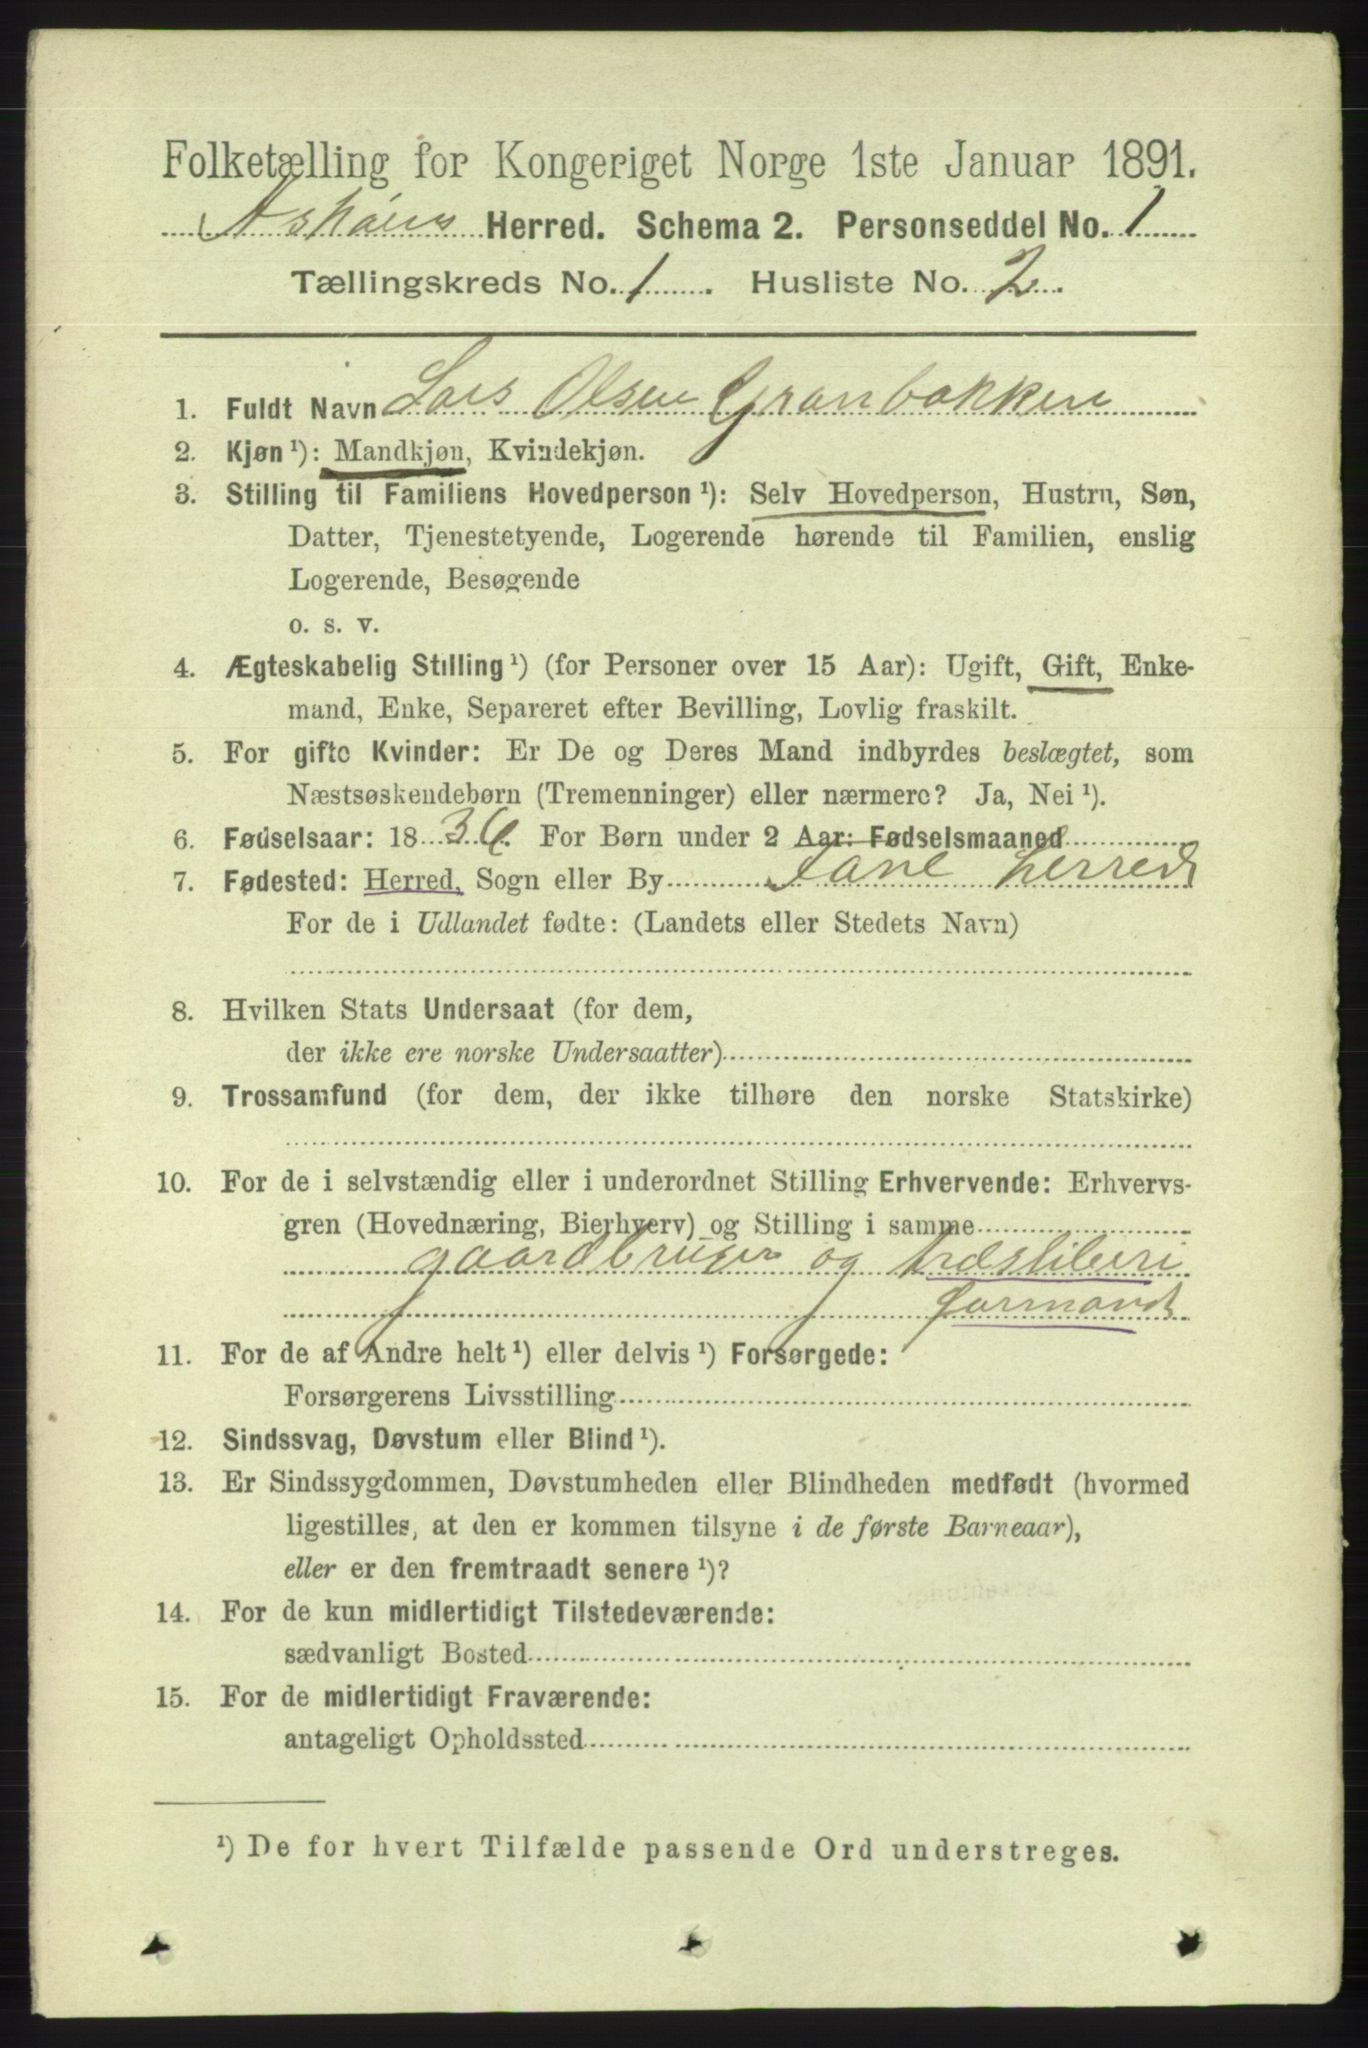 Folketælling for Kongeriget Norge 1ste Januar 1891.
Askøens Herred. Schema 2. Personseddel No. 1
Tællingskreds No. 1. Husliste No. 2.
1. Fuldt Navn Lars Olsen Granbakken
2. Kjøn ¹): Mandkjøn, Kvindekjøn.
3. Stilling til Familiens Hovedperson ¹): Selv Hovedperson, Hustru, Søn,
Datter, Tjenestetyende, Logerende hørende til Familien, enslig
Logerende, Besøgende
o. s. v.
4. Ægteskabelig Stilling ¹) (for Personer over 15 Aar): Ugift, Gift, Enke-
mand, Enke, Separeret efter Bevilling, Lovlig fraskilt.
5. For gifte Kvinder: Er De og Deres Mand indbyrdes beslægtet, som
Næstsøskendebørn (Tremenninger) eller nærmere? Ja, Nei ¹).
6. Fødselsaar: 1836. For Børn under 2 Aar: Fødselsmaaned
7. Fødested: Herred, Sogn eller By Fane herred
For de i Udlandet fødte: (Landets eller Stedets Navn)
8. Hvilken Stats Undersaat (for dem,
der ikke ere norske Undersaatter)
9. Trossamfund (for dem, der ikke tilhøre den norske Statskirke)
10. For de i selvstændig eller i underordnet Stilling Erhvervende: Erhvervs-
gren (Hovednæring, Bierhverv) og Stilling i samme
gaardbruger og
formand
11. For de af Andre helt ¹) eller delvis ¹) Forsørgede:
Forsørgerens Livsstilling
12. Sindssvag, Døvstum eller Blind ¹).
13. Er Sindssygdommen, Døvstumheden eller Blindheden medfødt (hvormed
ligestilles, at den er kommen tilsyne i de første Barneaar),
eller er den fremtraadt senere ¹)?
14. For de kun midlertidigt Tilstedeværende:
sædvanligt Bosted
15. For de midlertidigt Fraværende:
antageligt Opholdssted
¹) De for hvert Tilfælde passende Ord understreges.